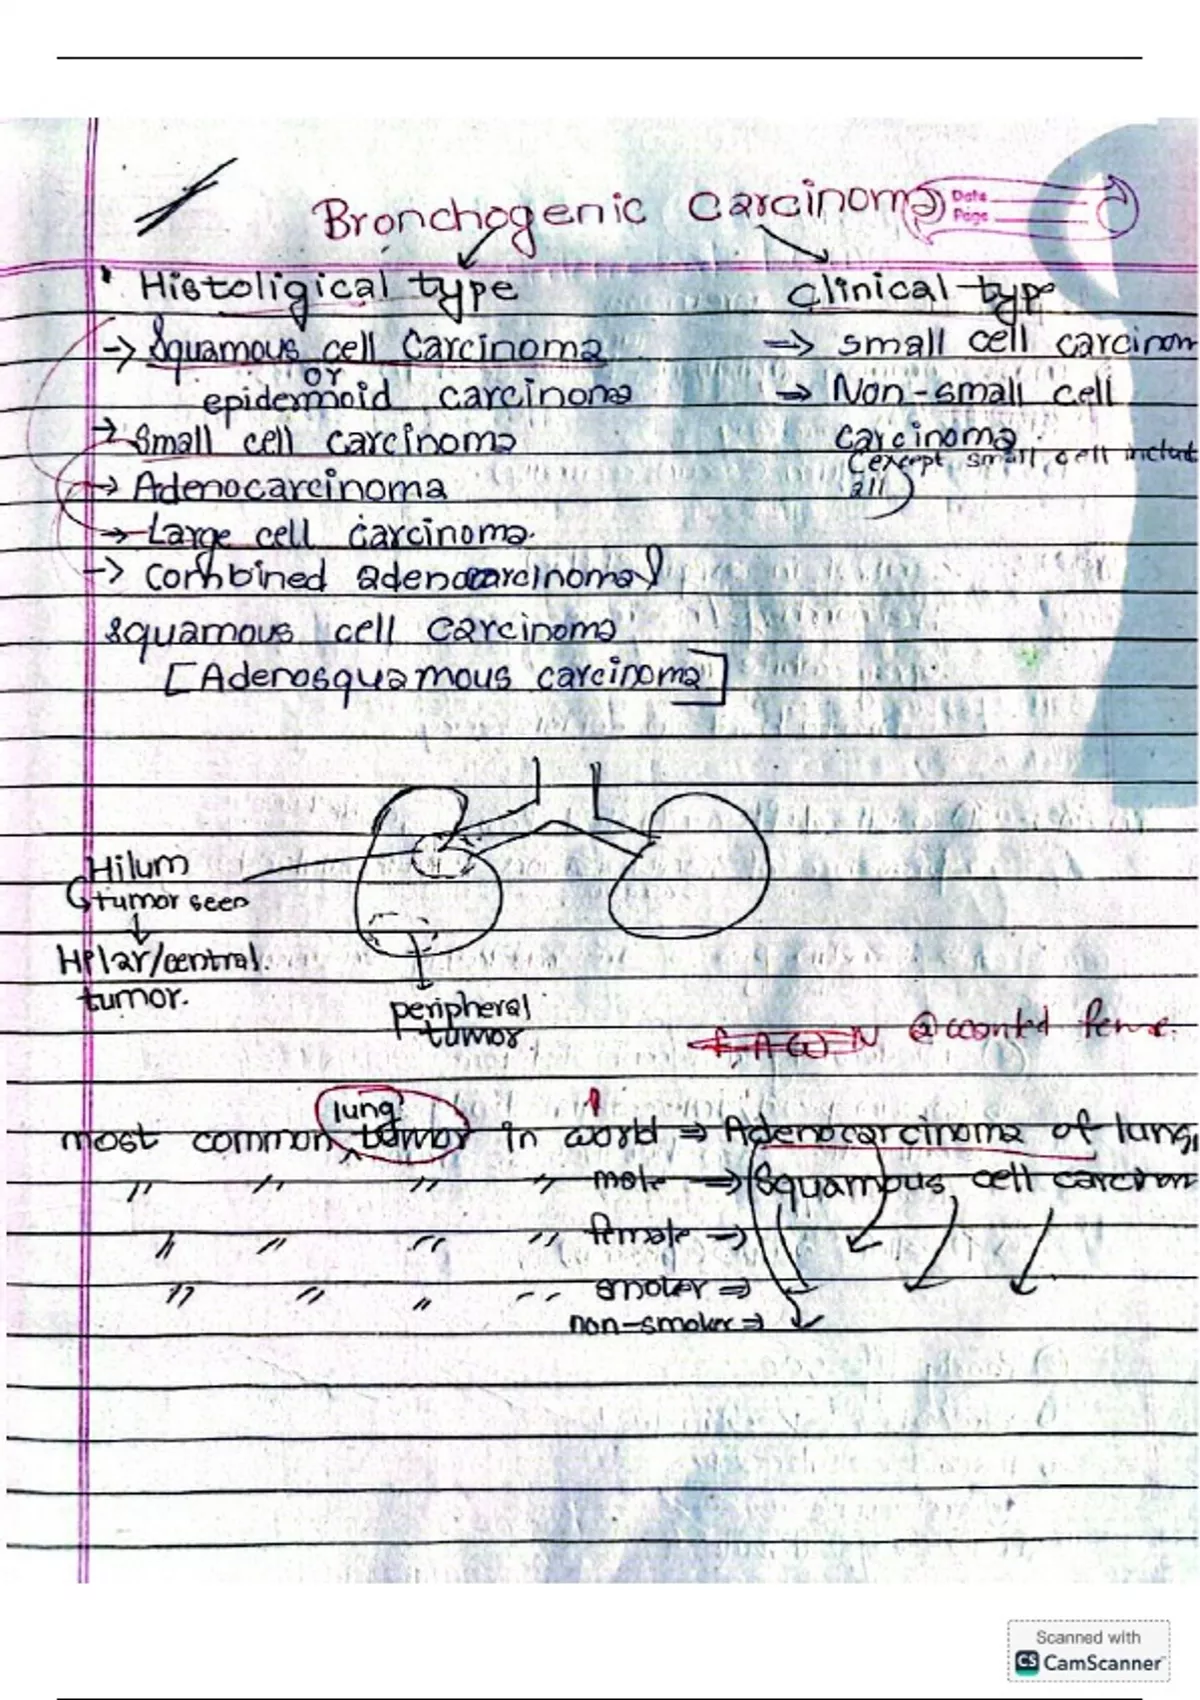 Bronchogenic Carcinoma
Date
Page
Histoligical type
Clinical type
→ Squamous cell Carcinoma
or
epidermoid carcinoma
→ Small cell carcinoma
→ Adenocarcinoma
→ Large cell carcinoma.
→ Combined adenocarcinoma
squamous cell carcinoma
[Adenosquamous carcinoma]
→ small cell carcinom
→ Non-small cell
carcinoma
(except small cell includ
all)
Hilum
tumor seen
↓
Hilar/central
tumor.
peripheral
tumor
lung
most common tumor in world ⇒ Adenocarcinoma of lung
〃 〃 〃 〃 male ⇒ Squamous cell carcinom
〃 〃 〃 〃 female →
〃 〃 〃 -- smoker ⇒
non-smoker ⇒
Scanned with
CS CamScanner